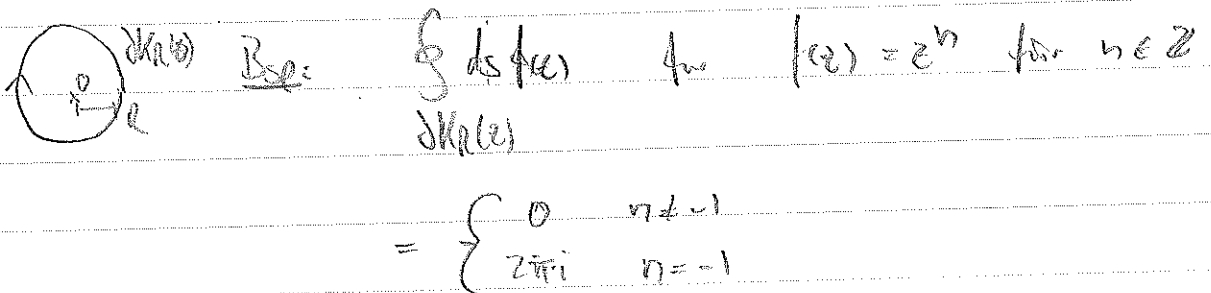 ∂K_R(0) Bsp: ∮ dz f(z) für f(z) = z^n für n ∈ ℤ
∂K_R(z)
0
R
= { 0 n ≠ -1
2πi n = -1